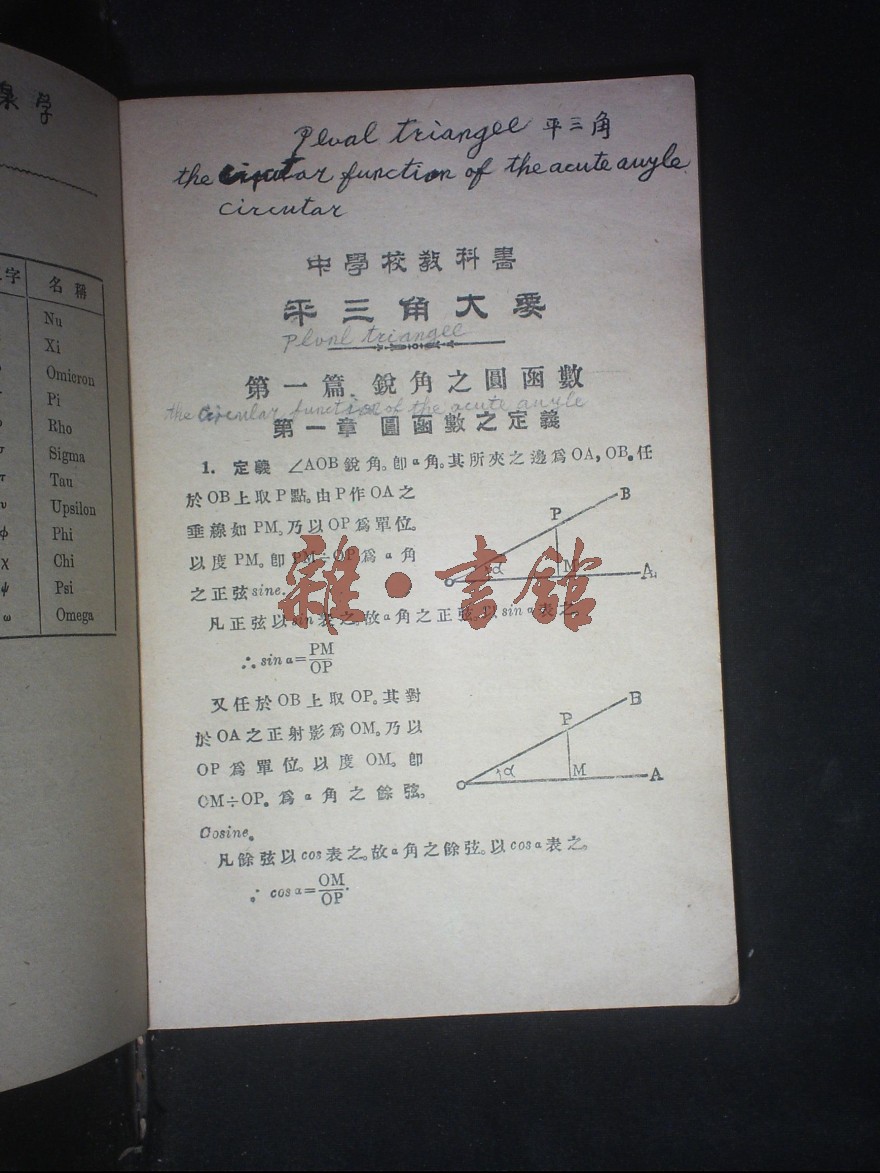 泉學
字 名稱
Nu
Xi
Omicron
Pi
Rho
σ Sigma
τ Tau
υ Upsilon
φ Phi
χ Chi
ψ Psi
ω Omega
Plval triangee 平三角
the circutar function of the acute auyle
circutar
中學校教科書
平三角大要
Plvnl triangee
第一篇 銳角之圓函數
the Circular function of the acute auyle
第一章 圓函數之定義
1. 定義 ∠AOB銳角。卽α角。其所夾之邊爲OA, OB。任
於OB上取P點。由P作OA之
垂線如PM。乃以OP爲單位。
以度PM。卽PM÷OP爲α角
之正弦sine.
B
P
α
M
A
凡正弦以sin表之。故α角之正弦。以sinα表之。
∴ sin α=PM/OP
又任於OB上取OP。其對
於OA之正射影爲OM。乃以
OP爲單位。以度OM。卽
OM÷OP。爲α角之餘弦。
Cosine。
B
P
α
M
A
凡餘弦以cos表之。故α角之餘弦。以cosα表之。
∴ cos α=OM/OP.
雜·書館